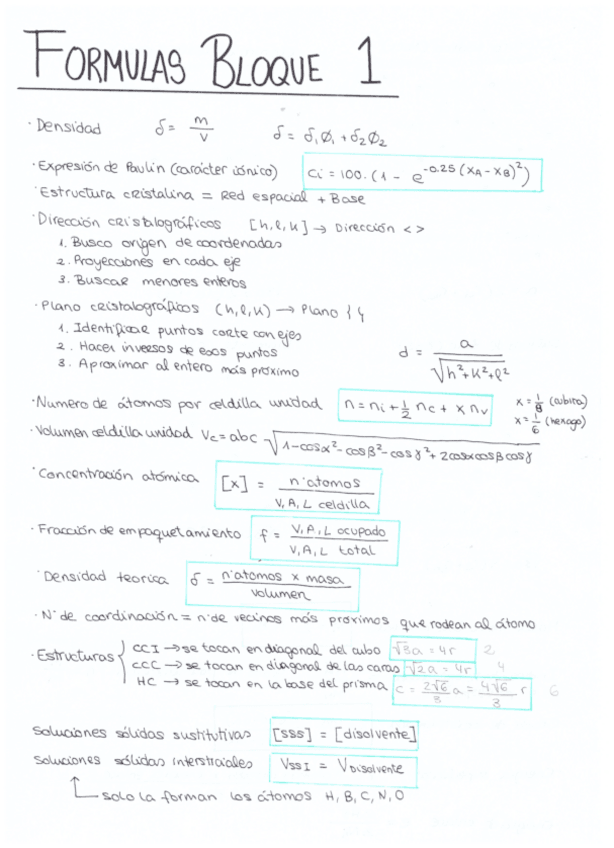 FORMULAS BLOQUE 1
· Densidad δ = m/V δ = δ₁Ø₁ + δ₂Ø₂
· Expresión de Paulin (carácter iónico) Ci = 100.(1 - e^(-0.25(XA - XB)²))
· Estructura cristalina = Red espacial + Base
· Dirección cristalográficos [h,l,k] → Dirección < >
1. Busco origen de coordenadas
2. Proyecciones en cada eje
3. Buscar menores enteros
· Plano cristalográficos (h,l,k) → Plano { }
1. Identificar puntos corte con ejes
2. Hacer inversos de esos puntos
3. Aproximar al entero más próximo
d = a/√(h²+k²+l²)
· Numero de átomos por celdilla unidad n = ni + 1/2 nc + x nv x = 1/8 (cubica)
x = 1/6 (hexago)
· Volumen celdilla unidad Vc = abc √(1-cosα²-cosβ²-cosγ²+2cosαcosβcosγ)
· Concentración atómica [x] = n·atomos / V,A,L celdilla
· Fracción de empaquetamiento f = V,A,L ocupado / V,A,L total
· Densidad teorica δ = n·atomos x masa / volumen
· Nº de coordinación = nº de vecinos más próximos que rodean al átomo
· Estructuras { CCI → se tocan en diagonal del cubo √3a = 4r 2
CCC → se tocan en diagonal de las caras √2a = 4r 4
HC → se tocan en la base del prisma c = 2√6/3 a = 4√6/3 r 6
Soluciones sólidas sustitutivas [SSS] = [disolvente]
Soluciones sólidas interstraiales VSSI = VDisolvente
↳ solo la forman los átomos H, B, C, N, O